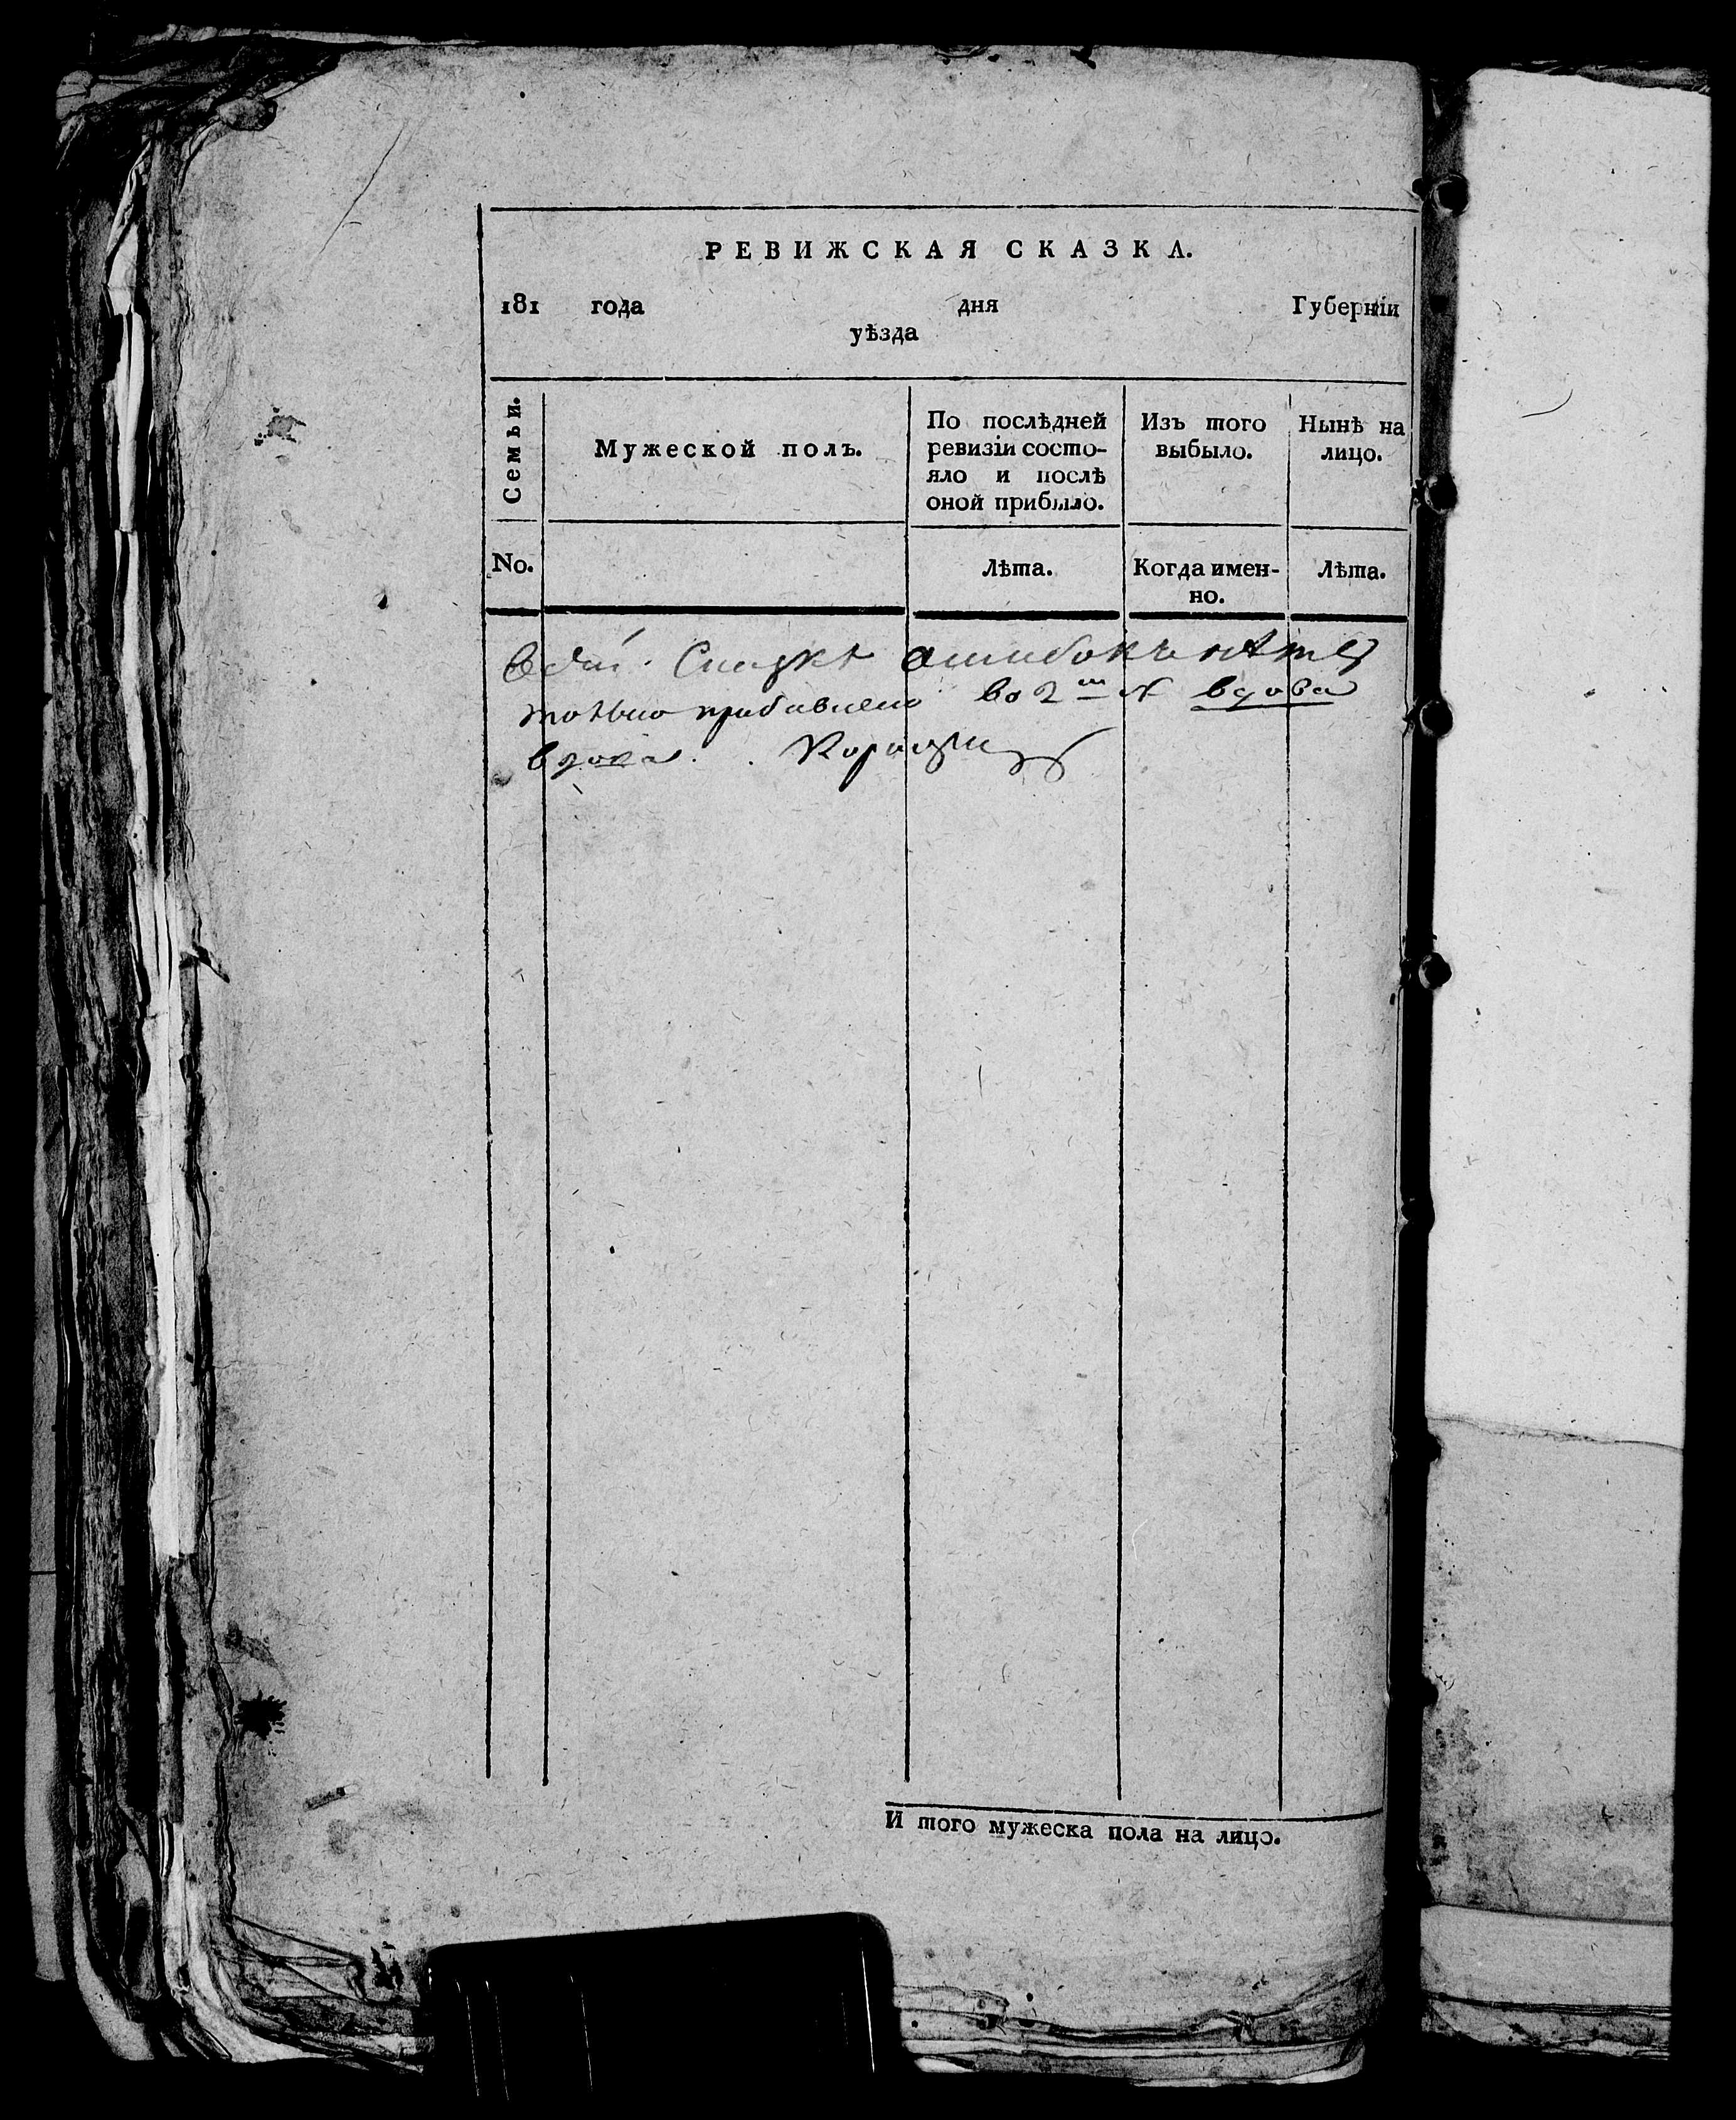 РЕВИЖСКАЯ СКАЗКА.
181 года дня Губерніи
уѣзда
Семьи.
Мужеской полъ.
По послѣдней
ревизіи состо-
яло и послѣ
оной прибыло.
Изъ того
выбыло.
Нынѣ на
лицо.
No.
Лѣта.
Когда имен-
но.
Лѣта.
Сказкѣ ошибокъ нѣтъ
только прибавлено во 2 № вдова
вдова.
И того мужеска пола на лицо.